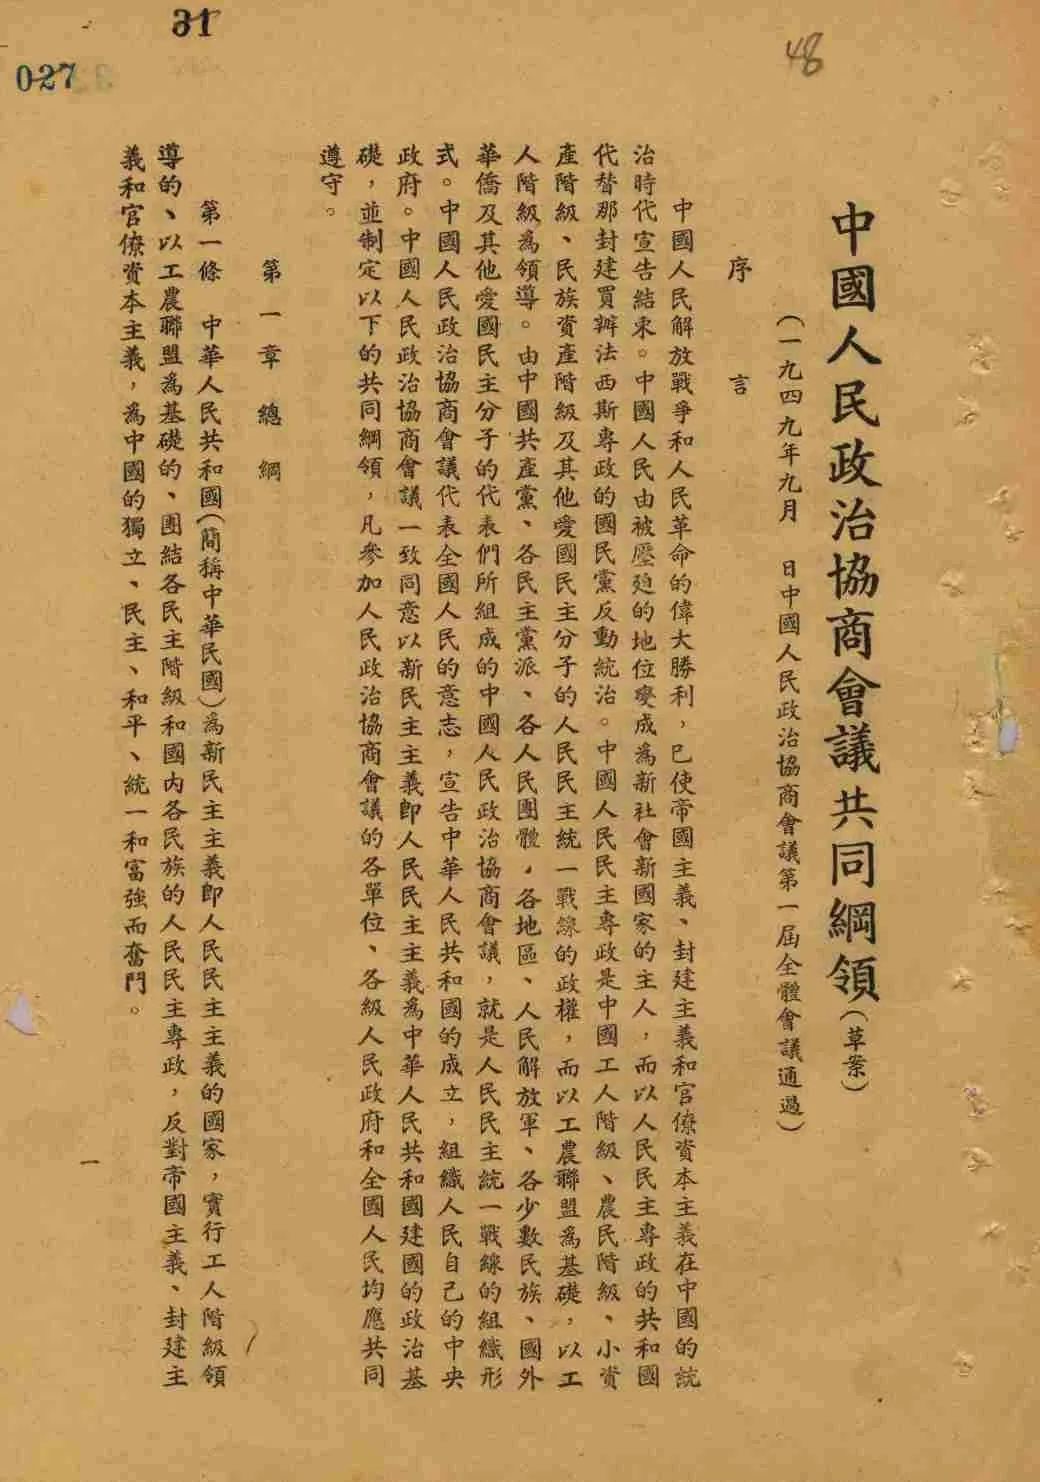 31
027
48
中國人民政治協商會議共同綱領（草案）
（一九四九年九月　日中國人民政治協商會議第一屆全體會議通過）
序言
中國人民解放戰爭和人民革命的偉大勝利，已使帝國主義、封建主義和官僚資本主義在中國的統
治時代宣告結束。中國人民由被壓迫的地位變成為新社會新國家的主人，而以人民民主專政的共和國
代替那封建買辦法西斯專政的國民黨反動統治。中國人民民主專政是中國工人階級、農民階級、小資
產階級、民族資產階級及其他愛國民主分子的人民民主統一戰線的政權，而以工農聯盟為基礎，以工
人階級為領導。由中國共產黨、各民主黨派、各人民團體，各地區、人民解放軍、各少數民族、國外
華僑及其他愛國民主分子的代表們所組成的中國人民政治協商會議，就是人民民主統一戰線的組織形
式。中國人民政治協商會議代表全國人民的意志，宣告中華人民共和國的成立，組織人民自己的中央
政府。中國人民政治協商會議一致同意以新民主主義即人民民主主義為中華人民共和國建國的政治基
礎，並制定以下的共同綱領，凡參加人民政治協商會議的各單位、各級人民政府和全國人民均應共同
遵守。
第一章總綱
第一條　中華人民共和國（簡稱中華民國）為新民主主義即人民民主主義的國家，實行工人階級領
導的、以工農聯盟為基礎的、團結各民主階級和國內各民族的人民民主專政，反對帝國主義、封建主
義和官僚資本主義，為中國的獨立、民主、和平、統一和富強而奮鬥。
一